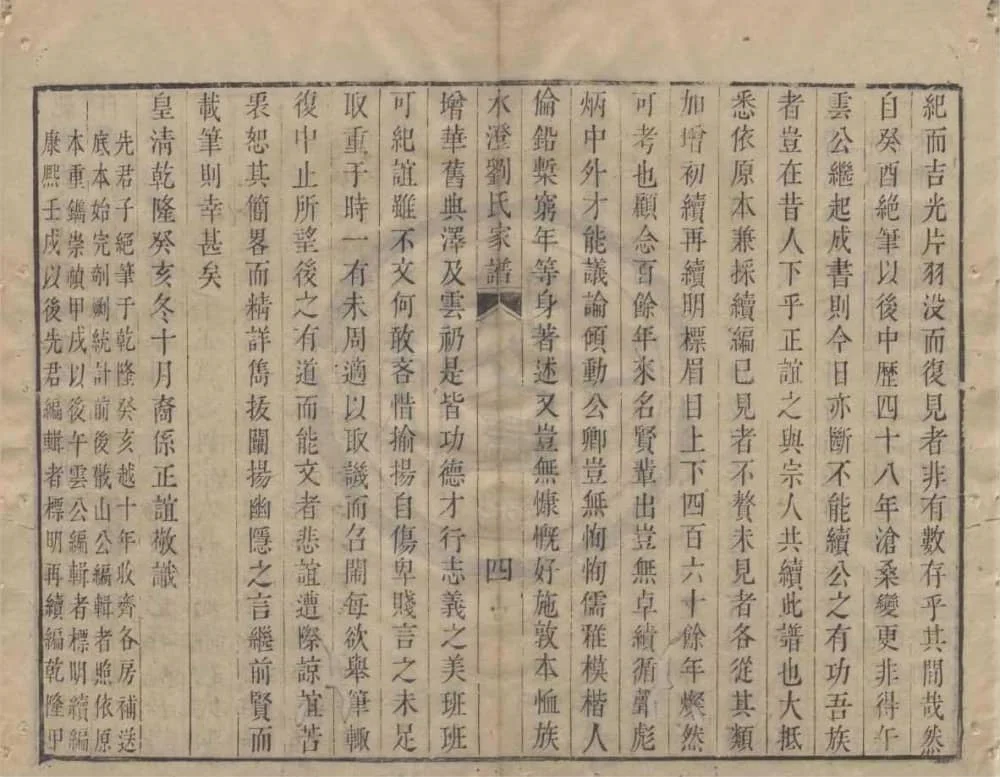 紀而吉光片羽没而復見者非有數存乎其間哉然
自癸酉絶筆以後中歴四十八年滄桑變更非得午
雲公繼起成書則今日亦斷不能續公之有功吾族
者豈在昔人下乎正誼之與宗人共續此譜也大抵
悉依原本兼採續編已見者不贅未見者各從其類
加増初續再續明標眉目上下四百六十餘年燦然
可考也顧念百餘年來名賢輩出豈無卓績循聲彪
炳中外才能議論傾動公卿豈無恂恂儒雅模楷人
倫鉛槧窮年等身著述又豈無慷慨好施敦本恤族
水澄劉氏家譜 四
增華舊典澤及雲礽是皆功德才行志義之美班班
可紀誼雖不文何敢吝惜揄揚自傷卑賤言之未足
取重于時一有未周適以取譏而召鬧每欲舉筆輙
復中止所望後之有道而能文者悲誼遭際諒誼苦
衷恕其簡畧而精詳雋拔闡揚幽隱之言繼前賢而
載筆則幸甚矣
皇清乾隆癸亥冬十月裔孫正誼敬識
先君子絕筆于乾隆癸亥越十年收齊各房補送
底本始完剞劂統計前後蕺山公編輯者照依原
本重鐫崇禎甲戌以後午雲公編輯者標明續編
康熙壬戌以後先君編輯者標明再續編乾隆甲